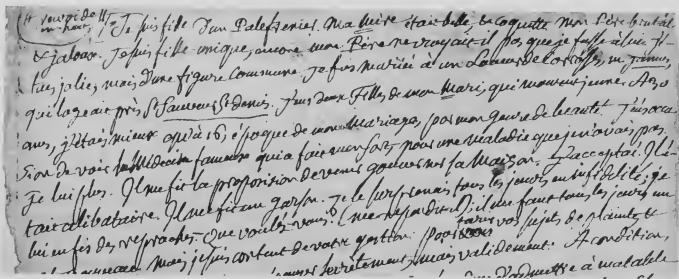 Je suis fille d'un Palefrenier. Ma Mère était belle & coquette mon Père brutal
& jaloux. Je suis fille unique, encore mon Père ne croyait il pas que je fusse à lui. J'é-
tais jolie, mais d'une figure commune. Je fus mariée à un Loueur de Carosses, m. James,
qui logeait près St Sauveur St Denis. J'eus deux Filles de mon Mari, qui mourut jeune. A 20
ans, j'étais mieux qu'à 16, époque de mon Mariage, par mon genre de beauté. J'eus occa
sion de voir le Médecin fameux qui a fait mon sort, pour une maladie que je n'avais pas.
Je lui plus. Il me fit la proposition de venir gouverner sa Maison. J'acceptai. Il é-
tait célibataire. Il me fit un garson. Je le surprenais tous les jours en infidélité; je
lui en fis des reproches. Que voulés-vous? (me répondit-il): il me faut tous les jours un
mais je suis content de votre gestion. pour tarir vos sujets de plainte, &
secrètement, mais validement. A condition,
à malable